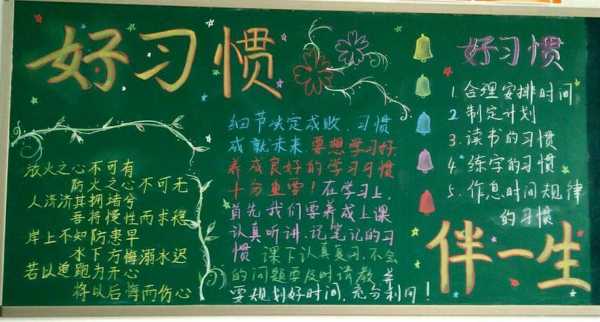 好习惯
放火之心不可有
防火之心不可无
人流济其拥堵兮
吾将慢性而求稳
岸上不知防患早
水下方悔溺水迟
若以追跑为开心
将以后悔而伤心
细节决定成败,习惯
成就未来 要想学习好
养成良好的学习习惯
十分重要!在学习上
首先我们要养成上课
认真听讲,记笔记的习
惯 课下认真复习,不会
的问题要及时请教 并
要规划好时间,充分利用!
好习惯
1.合理安排时间
2 制定计划
3.读书的习惯
4 练字的习惯
5.作息时间规律
的习惯
伴一生